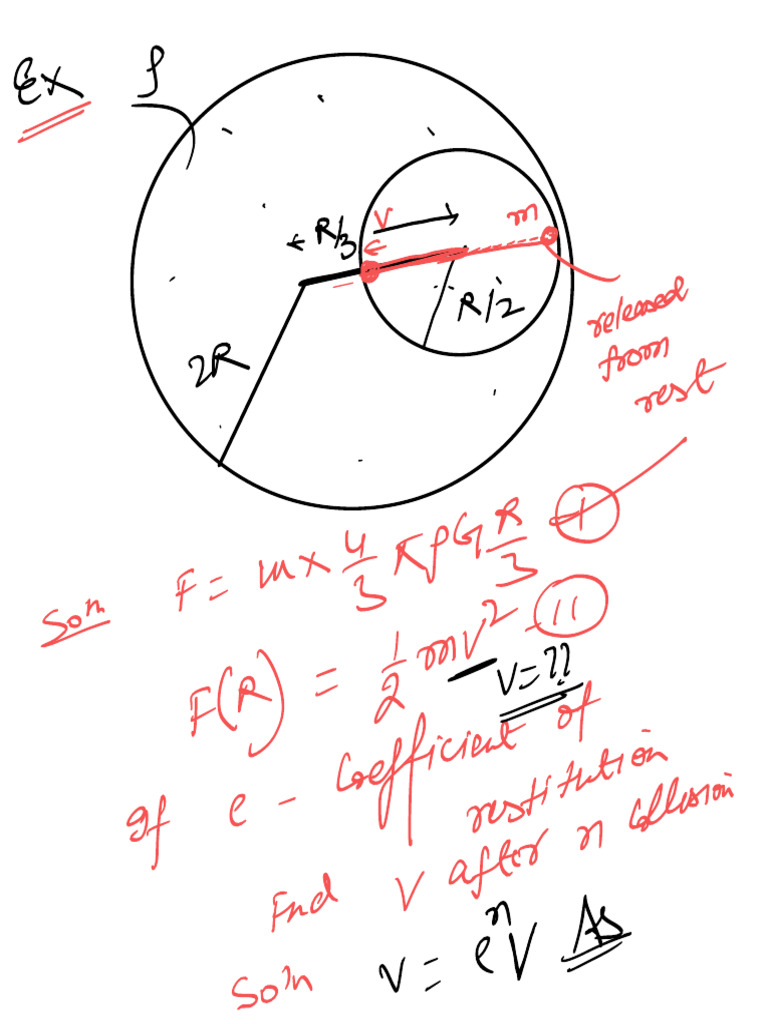 Ex ρ
R/3
V
m
R/2
2R
released
from
rest
Soln F = m x 4/3 πρG R/3 - I
F(R) = 1/2 mv² - II
V = ??
If e - Coefficient of
restitution
Find V after n collision
So'n v = eⁿV As